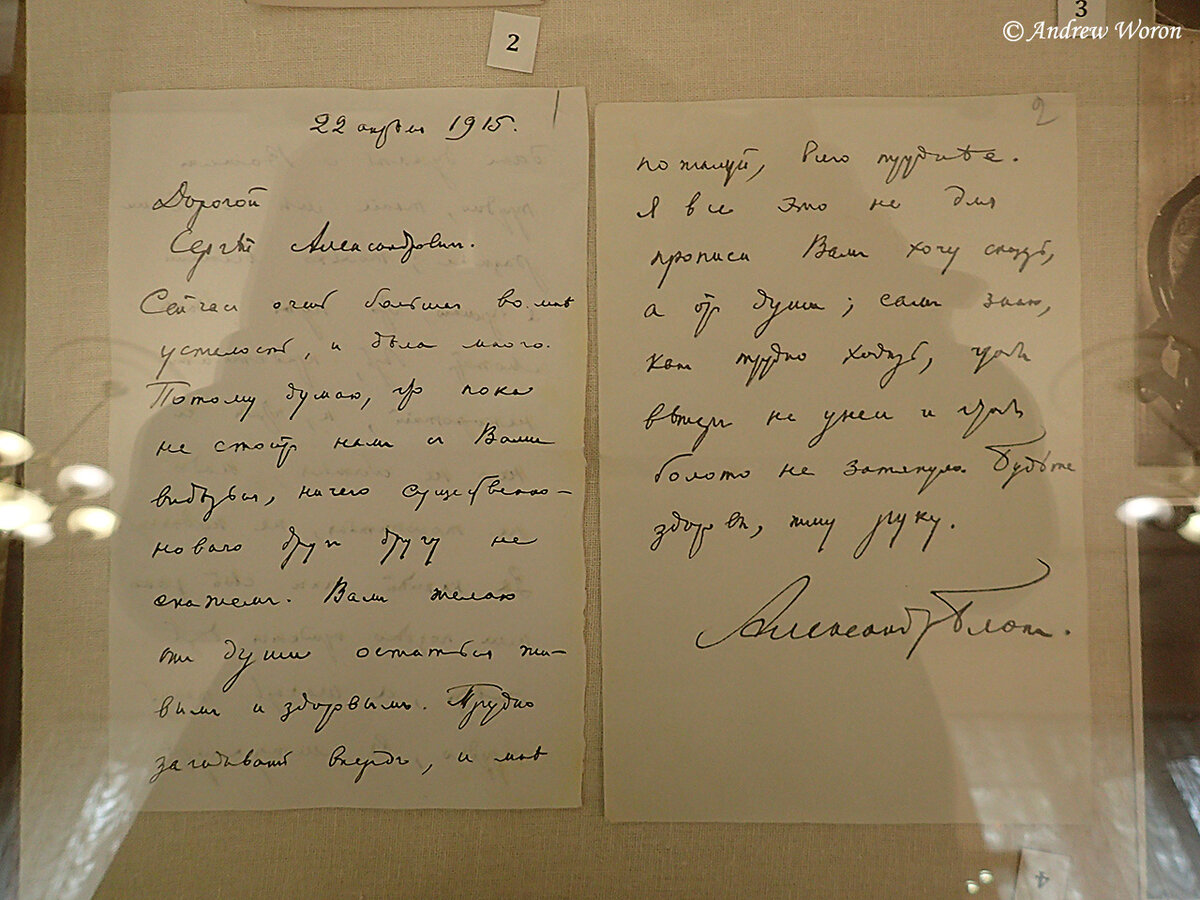 2
3
© Andrew Woron
22 апрѣля 1915.
1
Дорогой
Сергѣй Александрович.
Сейчас очень большая во мнѣ
усталость, и дѣла много.
Потому думаю, что пока
не стоит нам с Вами
видѣться, ничего существенно-
новаго друг другу не
скажем. Вам желаю
от души остаться жи-
вым и здоровым. Трудно
загадывать впередъ, и мнѣ
2
пожалуй, всего труднѣе.
Я все это не для
прописи Вам хочу сказать,
а от души; сам знаю,
как трудно ходить, чтобы
вѣтер не унес и чтобы
болото не затянуло. Будьте
здоровы, жму руку.
Александр Блок.
4